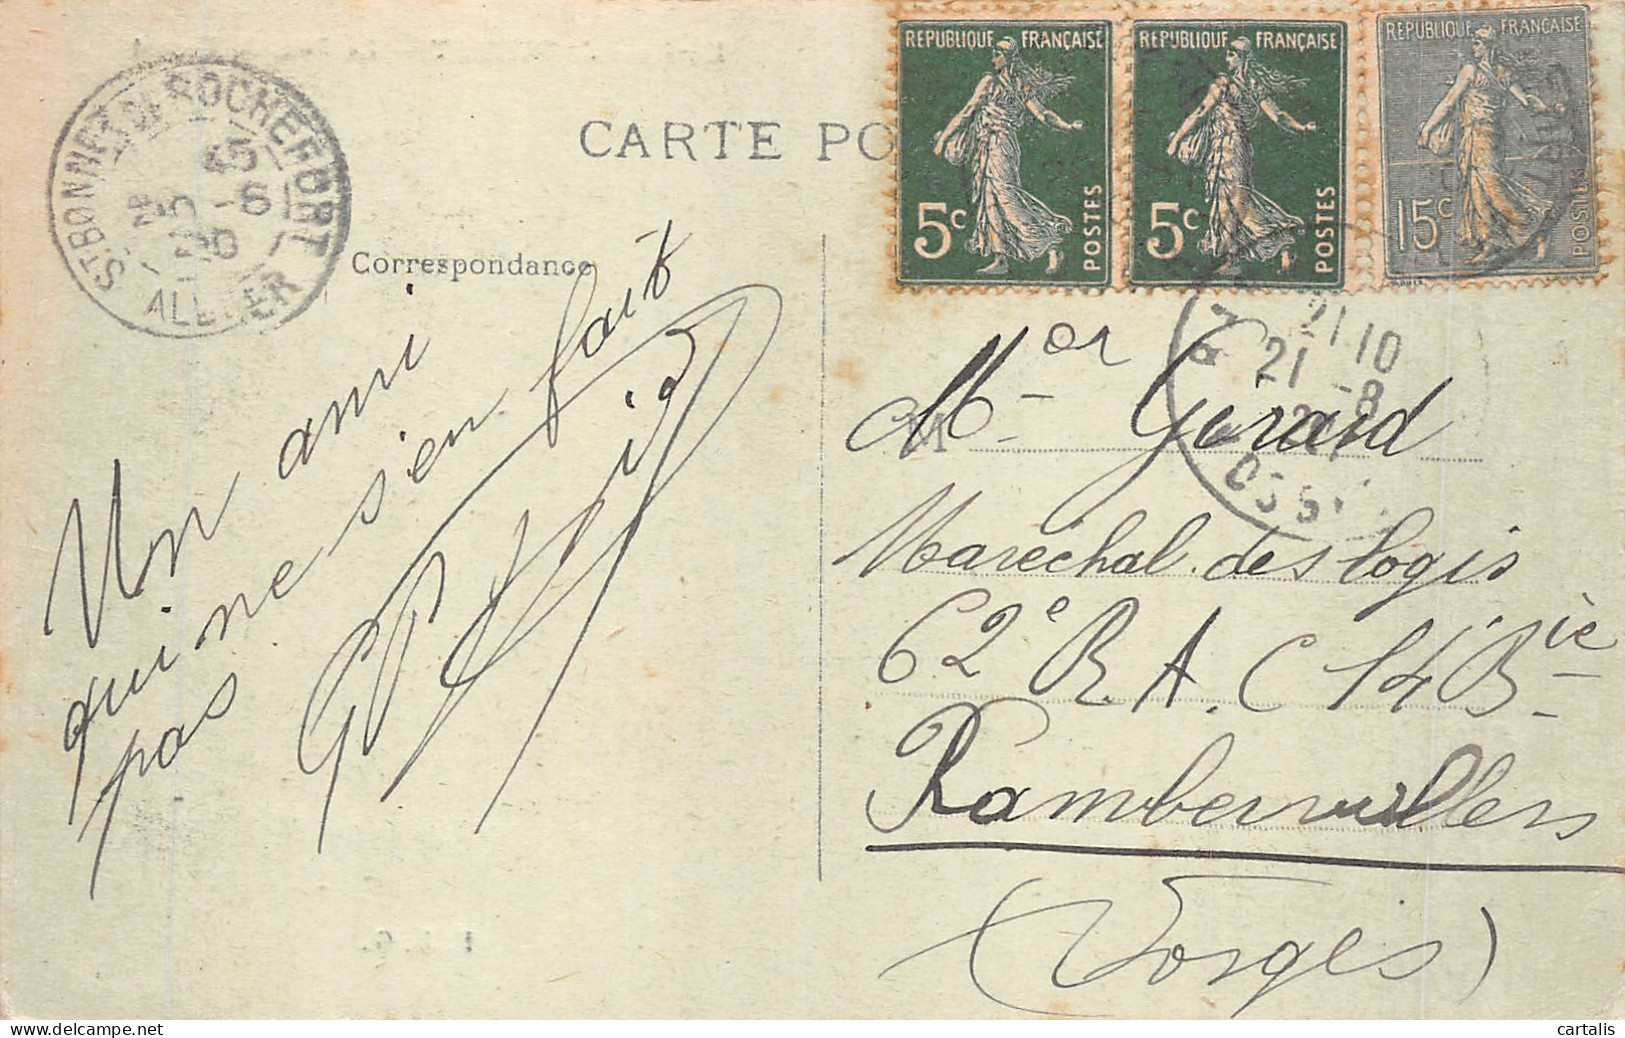 ST BONNET DE ROCHEFORT
ALLIER
CARTE PO
REPUBLIQUE FRANÇAISE
5c
POSTES
REPUBLIQUE FRANÇAISE
5c
POSTES
REPUBLIQUE FRANÇAISE
15c
POSTES
Correspondance
Un ami
qui ne s'en fait
pas
21 10
21 -8
M
Mor Gérard
Maréchal des logis
62e R.A.C 14 Bie
Rambervillers
(Vosges)
cartalis